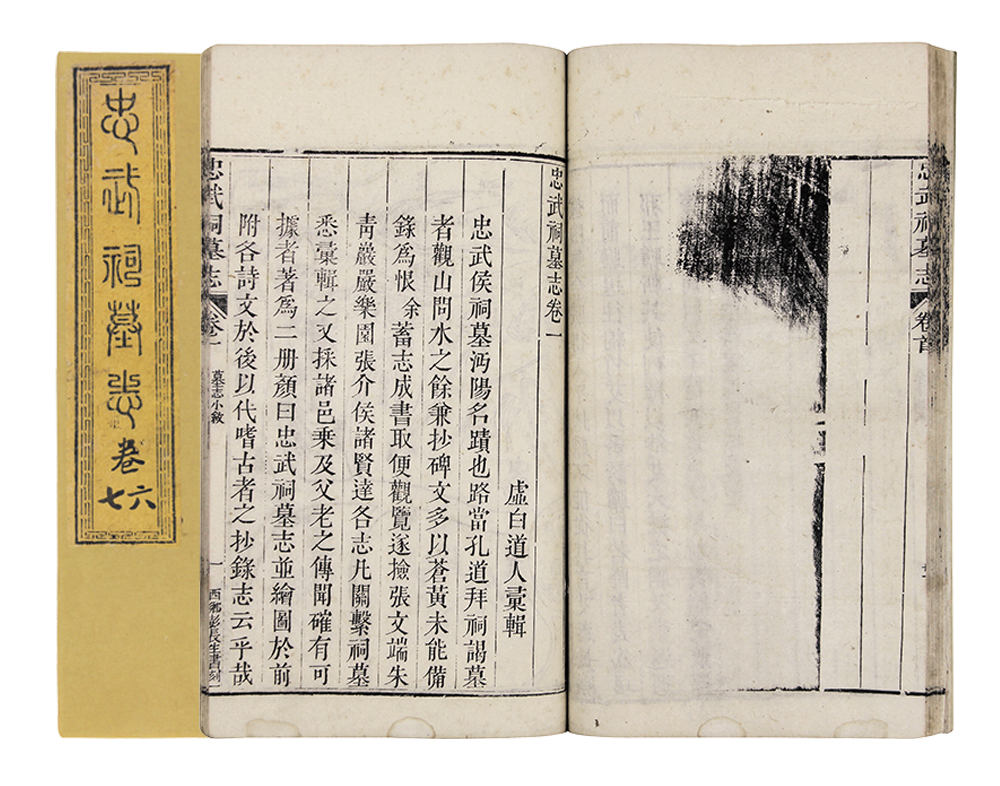 忠武祠墓志
卷
七六
忠武祠墓志
卷首
忠武祠墓志卷一
虛白道人彙輯
忠武侯祠墓沔陽名蹟也路當孔道拜祠謁墓
者觀山問水之餘兼抄碑文多以蒼黃未能備
錄爲恨余蓄志成書取便觀覽遂撿張文端朱
靑巖嚴樂園張介侯諸賢達各志凡關繫祠墓
悉彙輯之又採諸邑乘及父老之傳聞確有可
據者著爲二册顏曰忠武祠墓志並繪圖於前
附各詩文於後以代嗜古者之抄錄志云乎哉
忠武祠墓志
卷一
墓志小敘
一
西鄉彭長生書刻